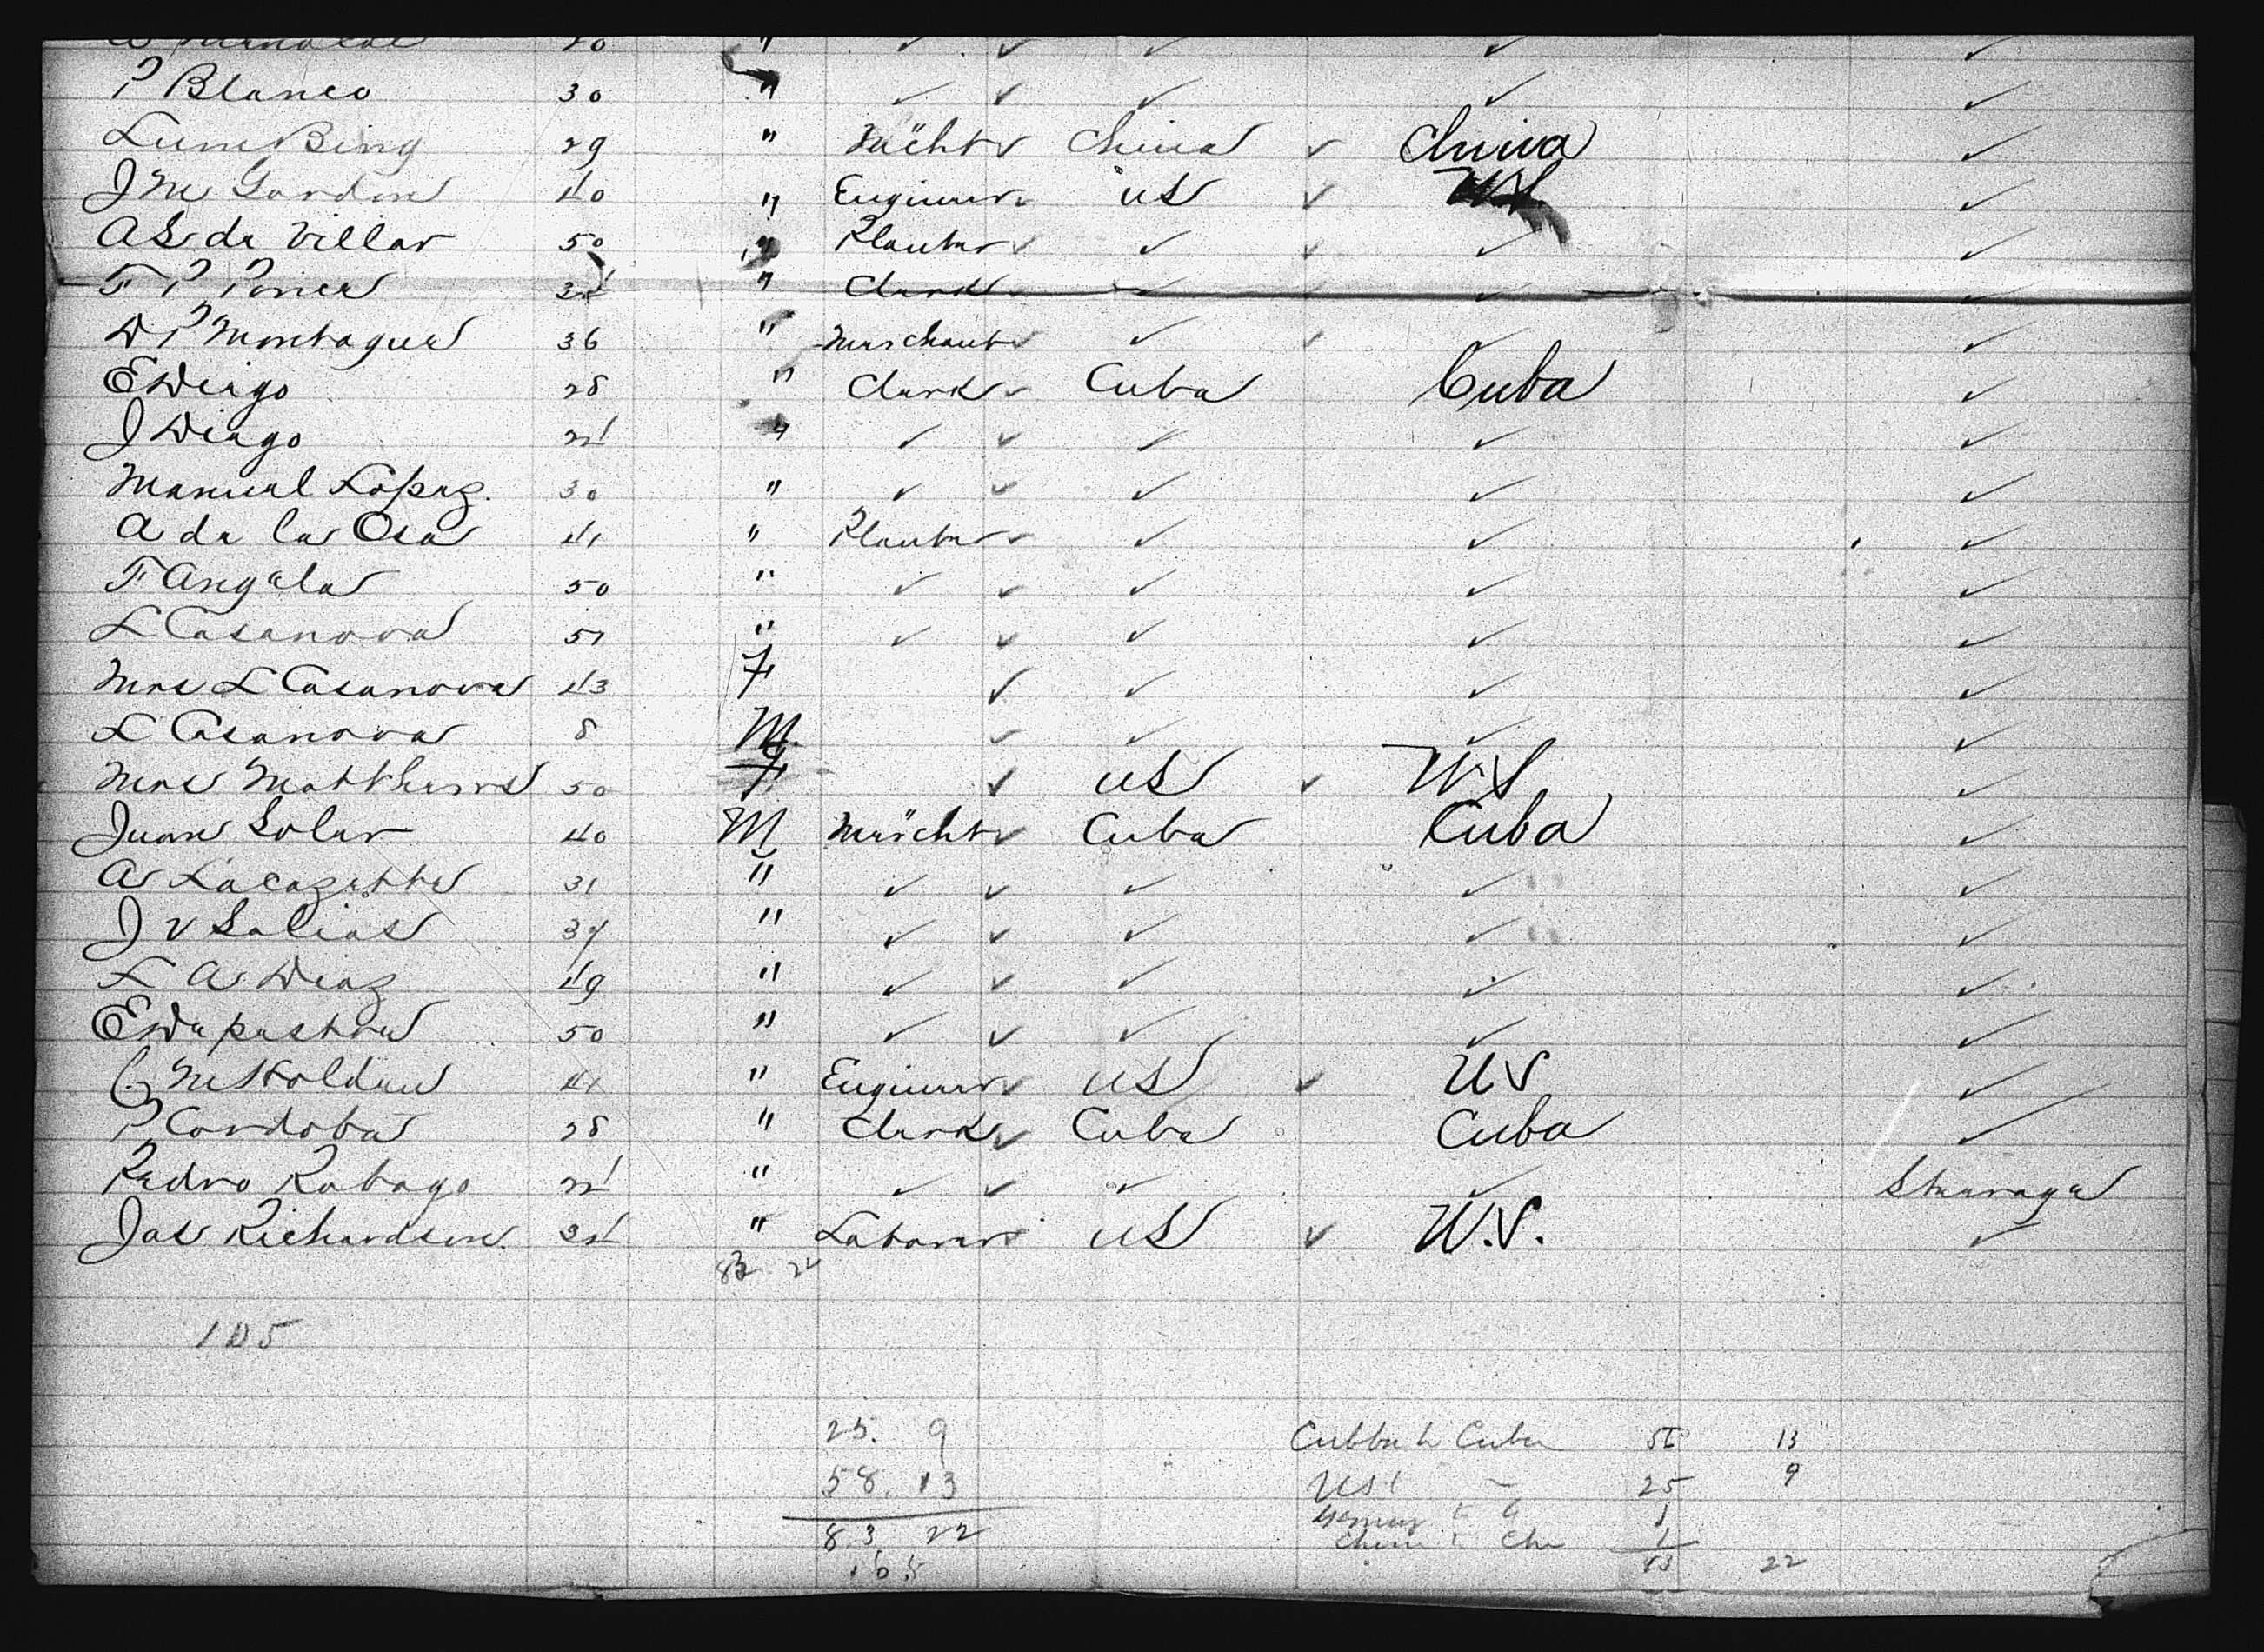 P Blanco 30 " ✓ ✓ ✓ ✓ ✓
Lum Bing 29 " Mächt ✓ China ✓ China ✓
J M Gordon 40 " Engineer ✓ US ✓ U.S. ✓
A S de Villar 50 " Planter ✓ ✓ ✓ ✓ ✓
F P Ponce " Clerk ✓ ✓ ✓ ✓ ✓
D P Montague 36 " Merchant ✓ ✓ ✓ ✓ ✓
E Diago 28 " Clerk ✓ Cuba Cuba ✓
J Diago " ✓ ✓ ✓ ✓ ✓
Manuel Lopez. 30 " ✓ ✓ ✓ ✓ ✓
A de la Osa 41 " Planter ✓ ✓ ✓ ✓
F Angela 50 " ✓ ✓ ✓ ✓ ✓
L Casanova 51 " ✓ ✓ ✓ ✓ ✓
Mrs L Casanova 43 F ✓ ✓ ✓ ✓
L Casanova 8 M. ✓ ✓ ✓ ✓
Mrs Matthews 50 F ✓ US ✓ U.S ✓
Juan Soler 40 M Mercht ✓ Cuba Cuba ✓
A Lacazette 31 " ✓ ✓ ✓ ✓ ✓
J V Salias 37 " ✓ ✓ ✓ ✓ ✓
L A Diaz 49 " ✓ ✓ ✓ ✓ ✓
E Depestre 50 " ✓ ✓ ✓ ✓ ✓
C M Holden " Engineer ✓ US ✓ US ✓
P Cordoba 28 " Clerk ✓ Cuba Cuba ✓
Pedro Rabago " ✓ ✓ ✓ ✓ Steerage
Jas Richardson. " Laborer ✓ US ✓ U.S. ✓
83 22
105
25. 9 Cuba 13
58. 13 US 25 9
1
83 22 1
105 22